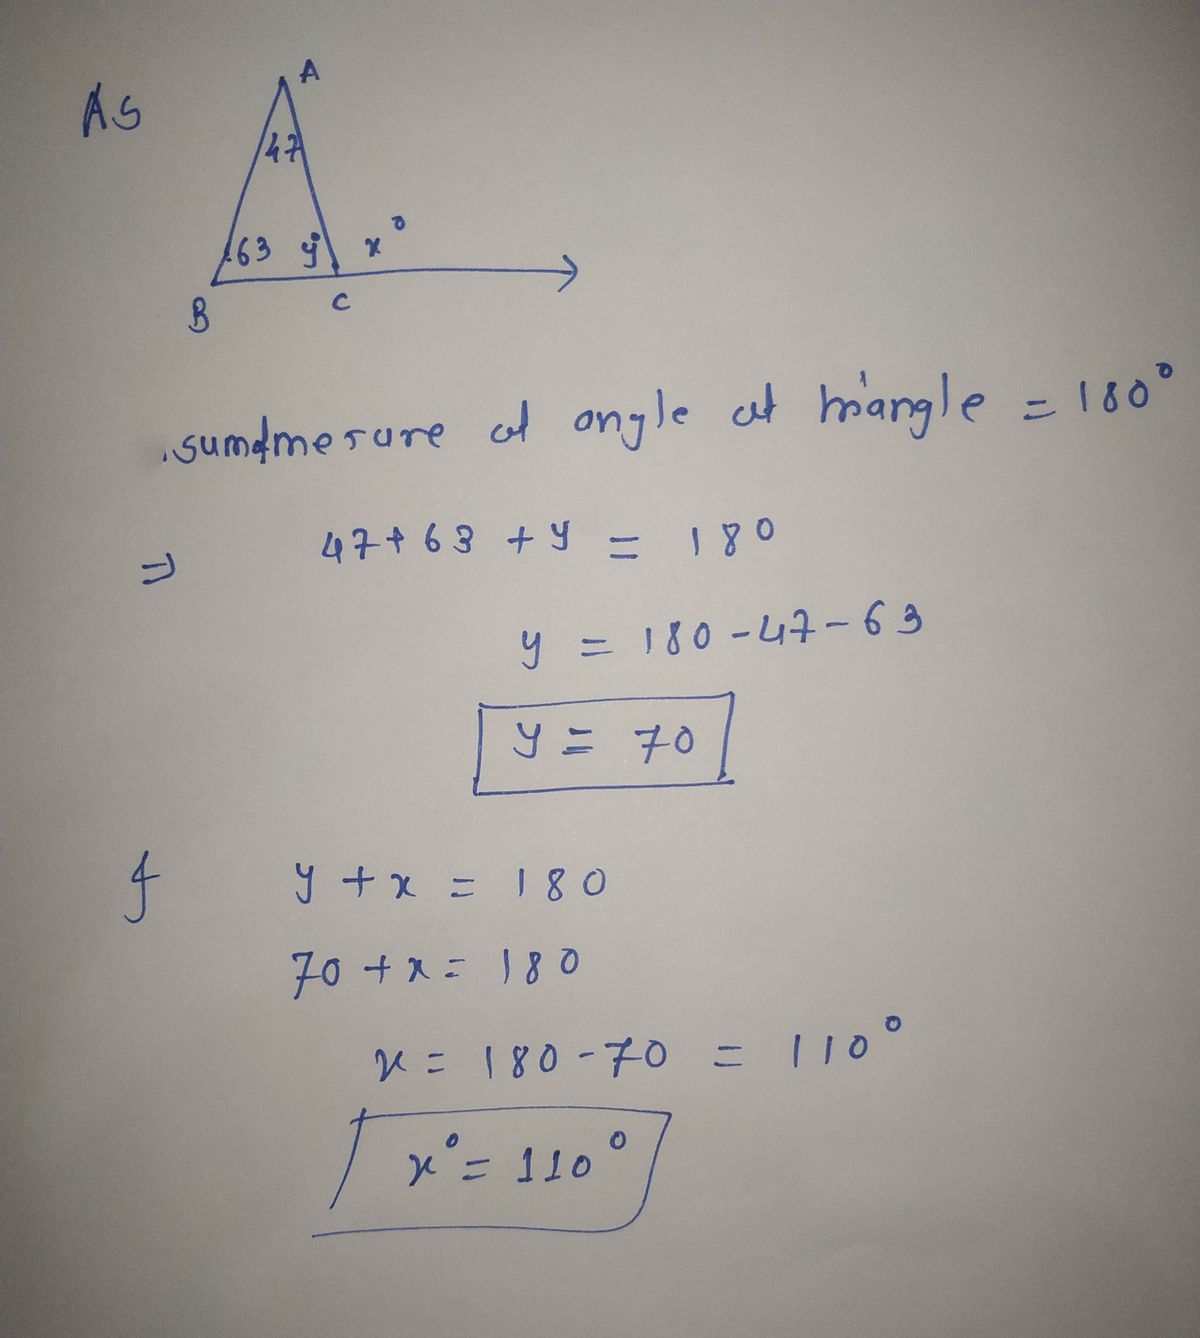 As
A
47
63 y° x°
B C
sum of mesure of angle of triangle = 180°
⇒ 47 + 63 + y = 180
y = 180 - 47 - 63
y = 70
y + x = 180
70 + x = 180
x = 180 - 70 = 110°
x° = 110°